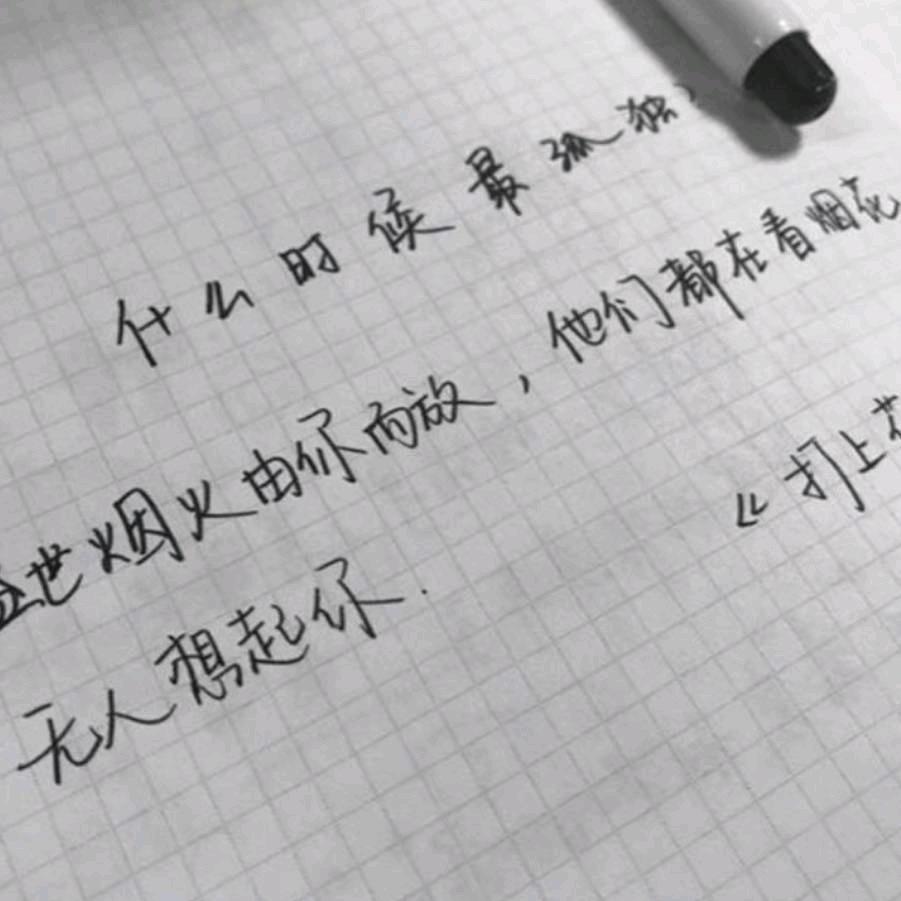 什么时候最孤独?
盛世烟火由你而放,他们都在看烟花
无人想起你.
《打上花